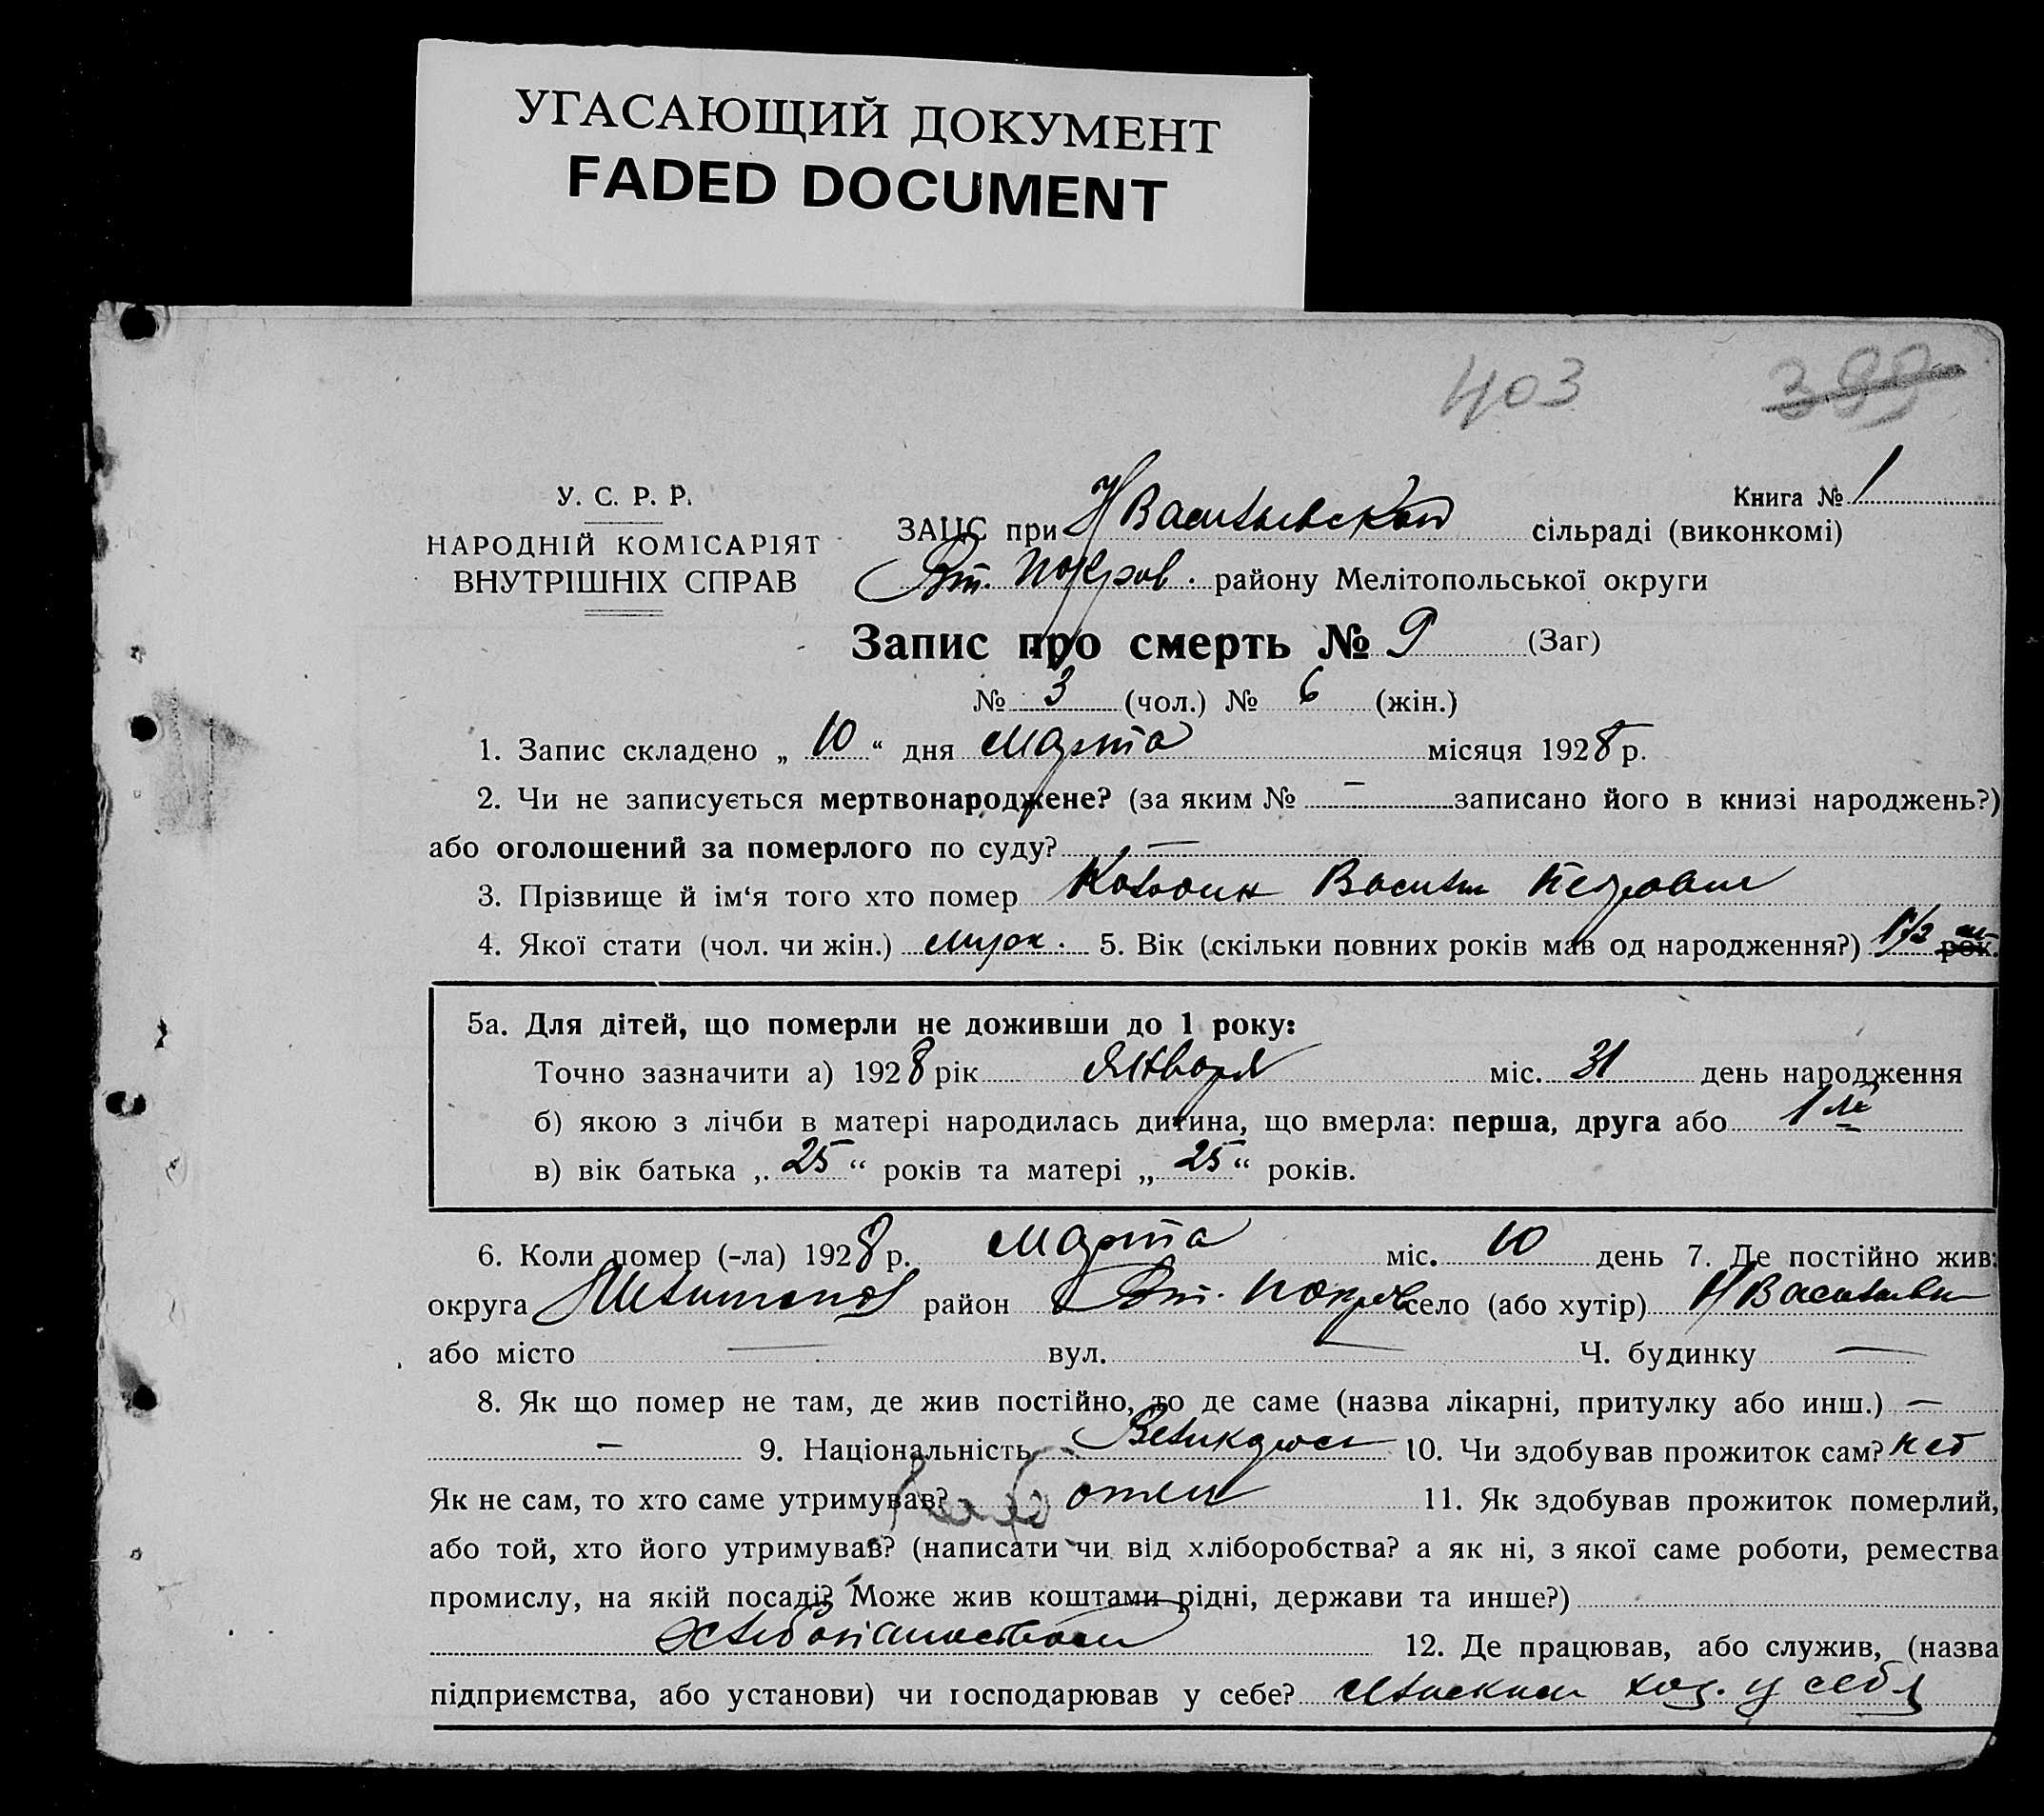 УГАСАЮЩИЙ ДОКУМЕНТ
FADED DOCUMENT
403 399
У. С. Р. Р.
НАРОДНІЙ КОМІСАРІЯТ
ВНУТРІШНІХ СПРАВ
Книга № 1
ЗАЦС при Н Васильевской сільраді (виконкомі)
Вт. Покров. району Мелітопольської округи
Запис про смерть № 9 (Заг)
№ 3 (чол.) № 6 (жін.)
1. Запис складено „ 10 “ дня Марта місяця 1928 р.
2. Чи не записується мертвонароджене? (за яким № — записано його в книзі народжень?)
або оголошений за померлого по суду? —
3. Прізвище й ім‘я того хто помер Василий Петрович
4. Якої стати (чол. чи жін.) муж. 5. Вік (скільки повних років мав од народження?) 1 1/2 м рок.
5а. Для дітей, що померли не доживши до 1 року:
Точно зазначити а) 1928 рік Января міс. 31 день народження
б) якою з лічби в матері народилась дитина, що вмерла: перша, друга або 1й
в) вік батька „ 25 “ років та матері „ 25 “ років.
6. Коли помер (-ла) 1928 р. Марта міс. 10 день 7. Де постійно жив:
округа Мелитопол район Вт. Покров село (або хутір) Н Васильевк
або місто — вул. — Ч. будинку —
8. Як що помер не там, де жив постійно, то де саме (назва лікарні, притулку або инш.) —
— 9. Національність Великорос 10. Чи здобував прожиток сам? нет
Як не сам, то хто саме утримував? отец 11. Як здобував прожиток померлий,
або той, хто його утримував? (написати чи від хліборобства? а як ні, з якої саме роботи, ремества
промислу, на якій посаді? Може жив коштами рідні, держави та инше?)
Хлебопашеством 12. Де працював, або служив, (назва
підприємства, або установи) чи господарював у себе? хоз. у себя